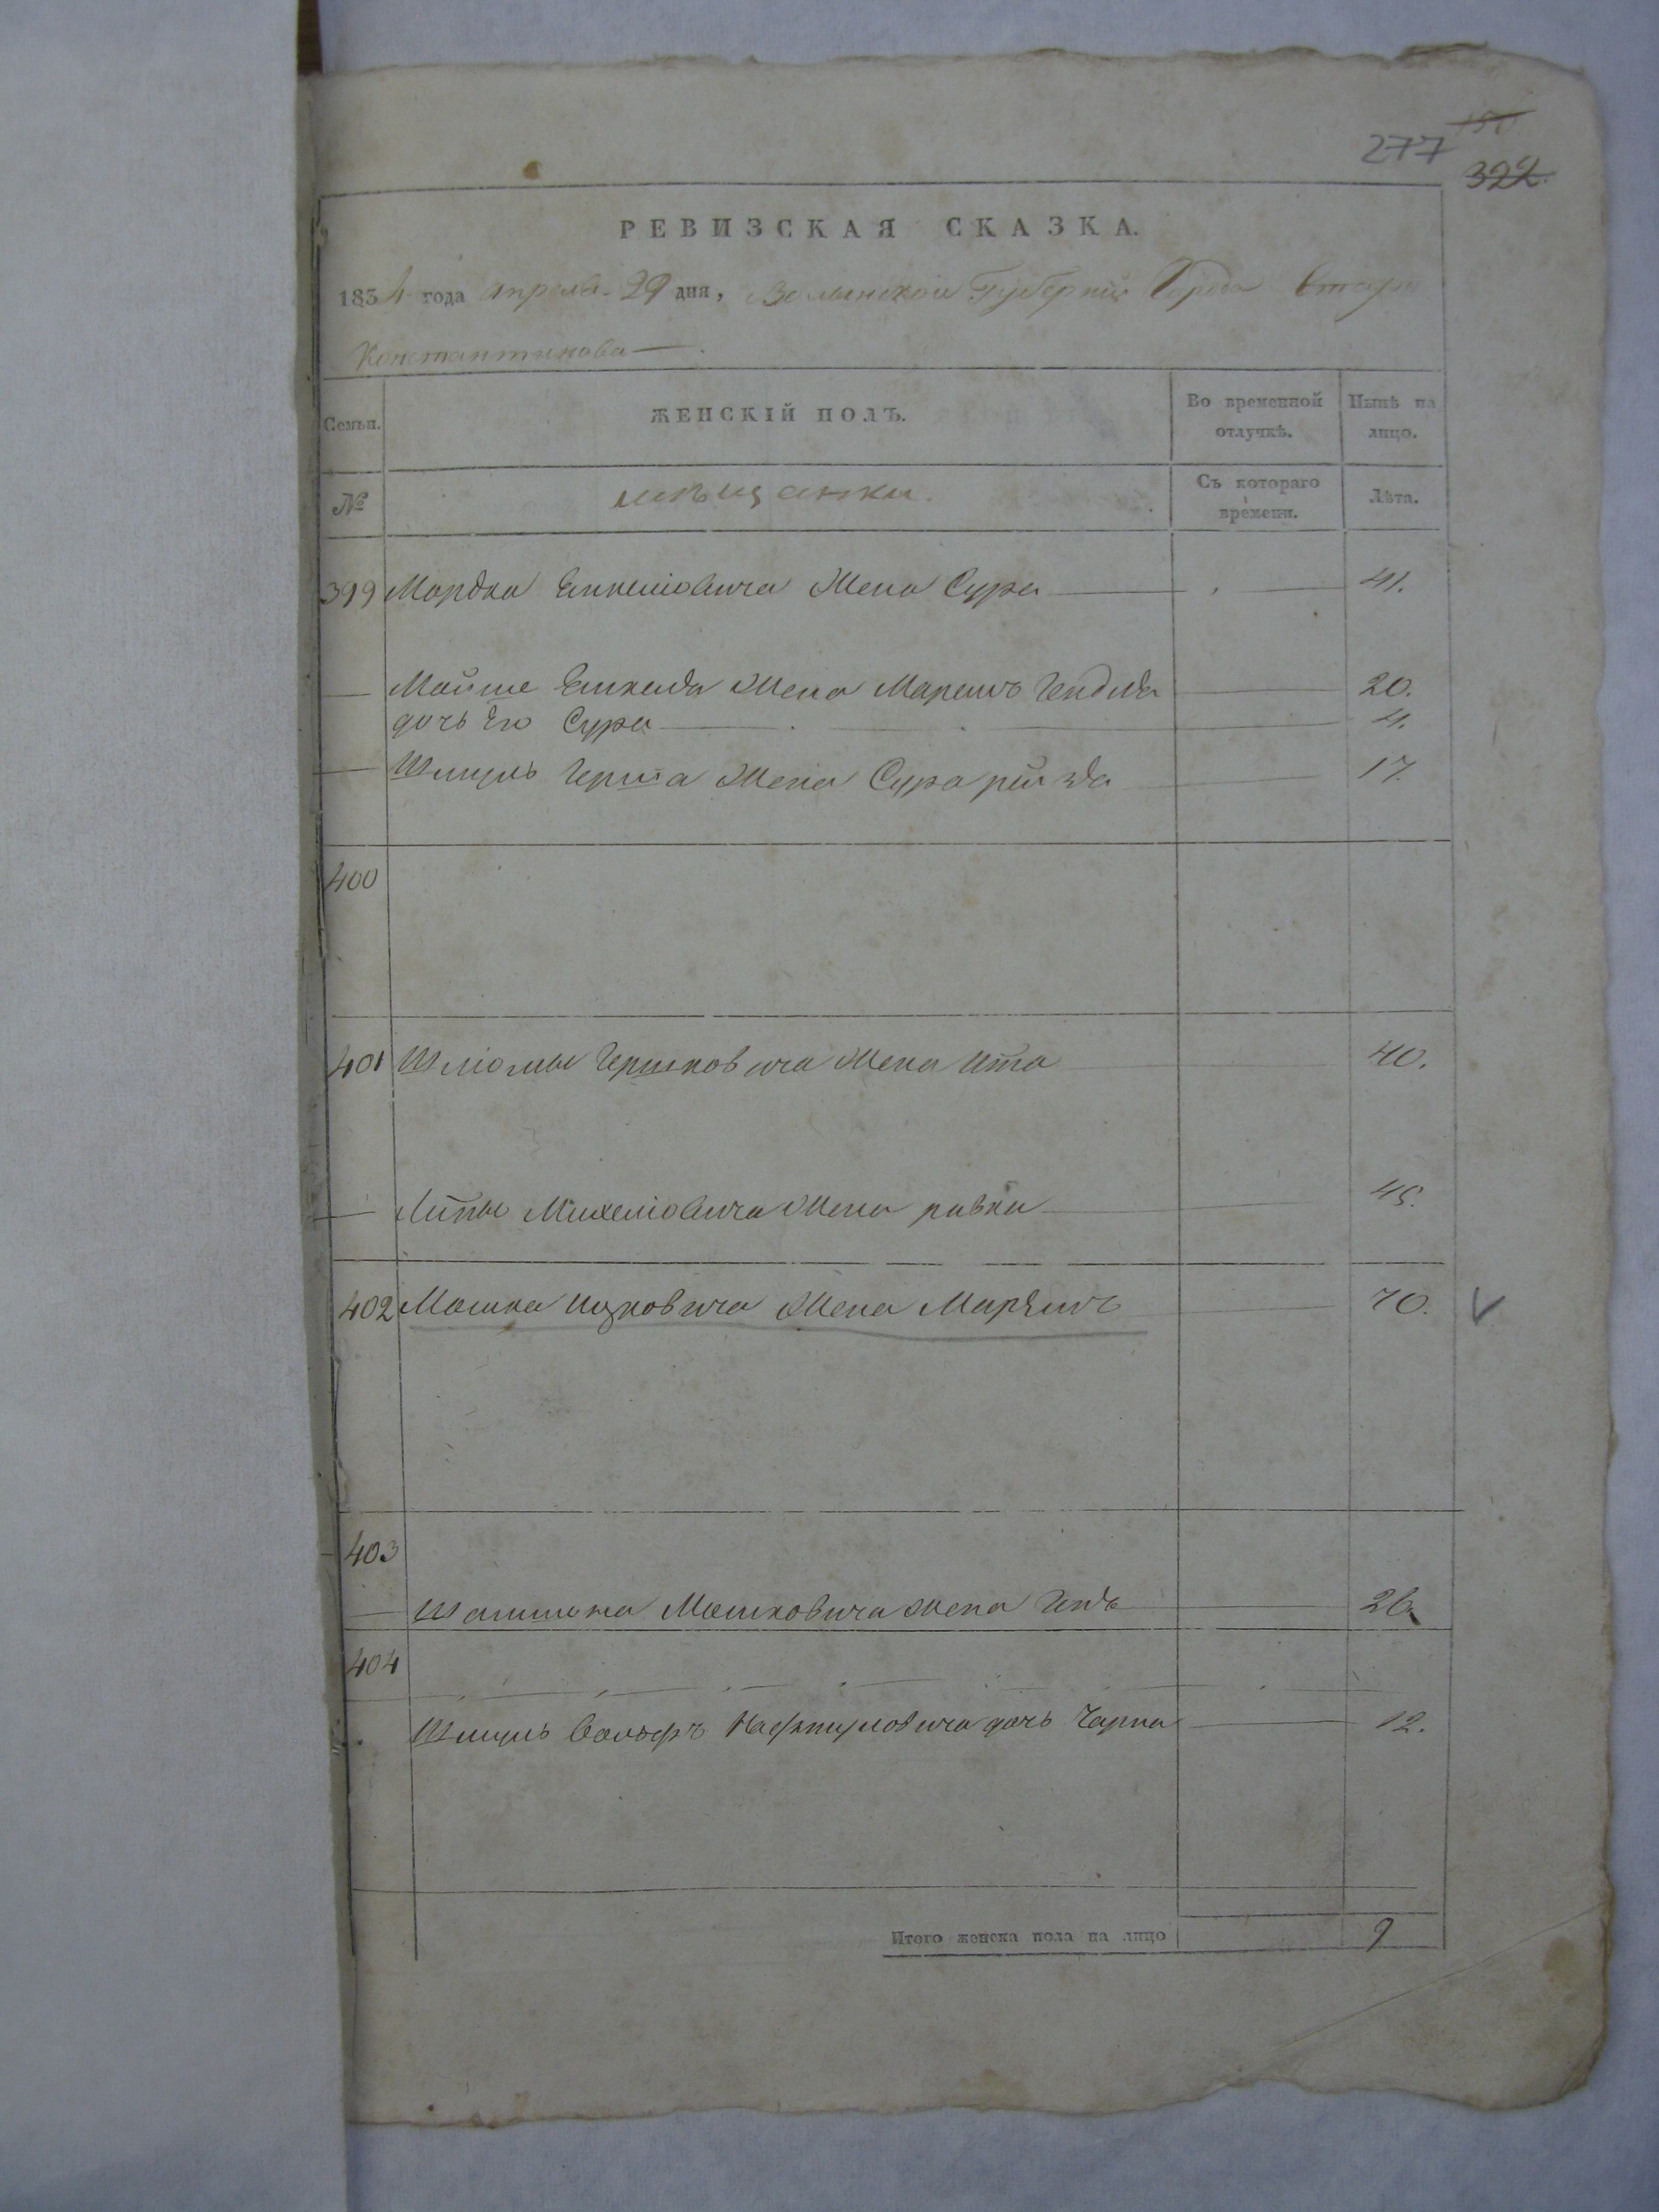 150
277 322.
РЕВИЗСКАЯ СКАЗКА.
1834 года апреля 29 дня, Волынской Губерніи Города Старо
Константинова
Семьи. ЖЕНСКІЙ ПОЛЪ. Во временной отлучкѣ. Нынѣ на лицо.
№ мѣщанки. Съ котораго времени. Лѣта.
399 Мордка Янкелiовича Жена Сура 41.
Мойше Жена Маремъ Гендля 20.
дочь Его Сура 4.
Шмуль Герша Жена Сура рейзя 17.
400
401 Шліомы Гершковича Жена Ита 40.
Липы Михелiовича Жена ривка 45.
402 Мошка Ицковича Жена Марьемъ 70.
403
Мошковича жена 26
404
Шмуль Вольфъ Нафтуловича дочь Чарна 12.
Итого женска пола на лицо 9